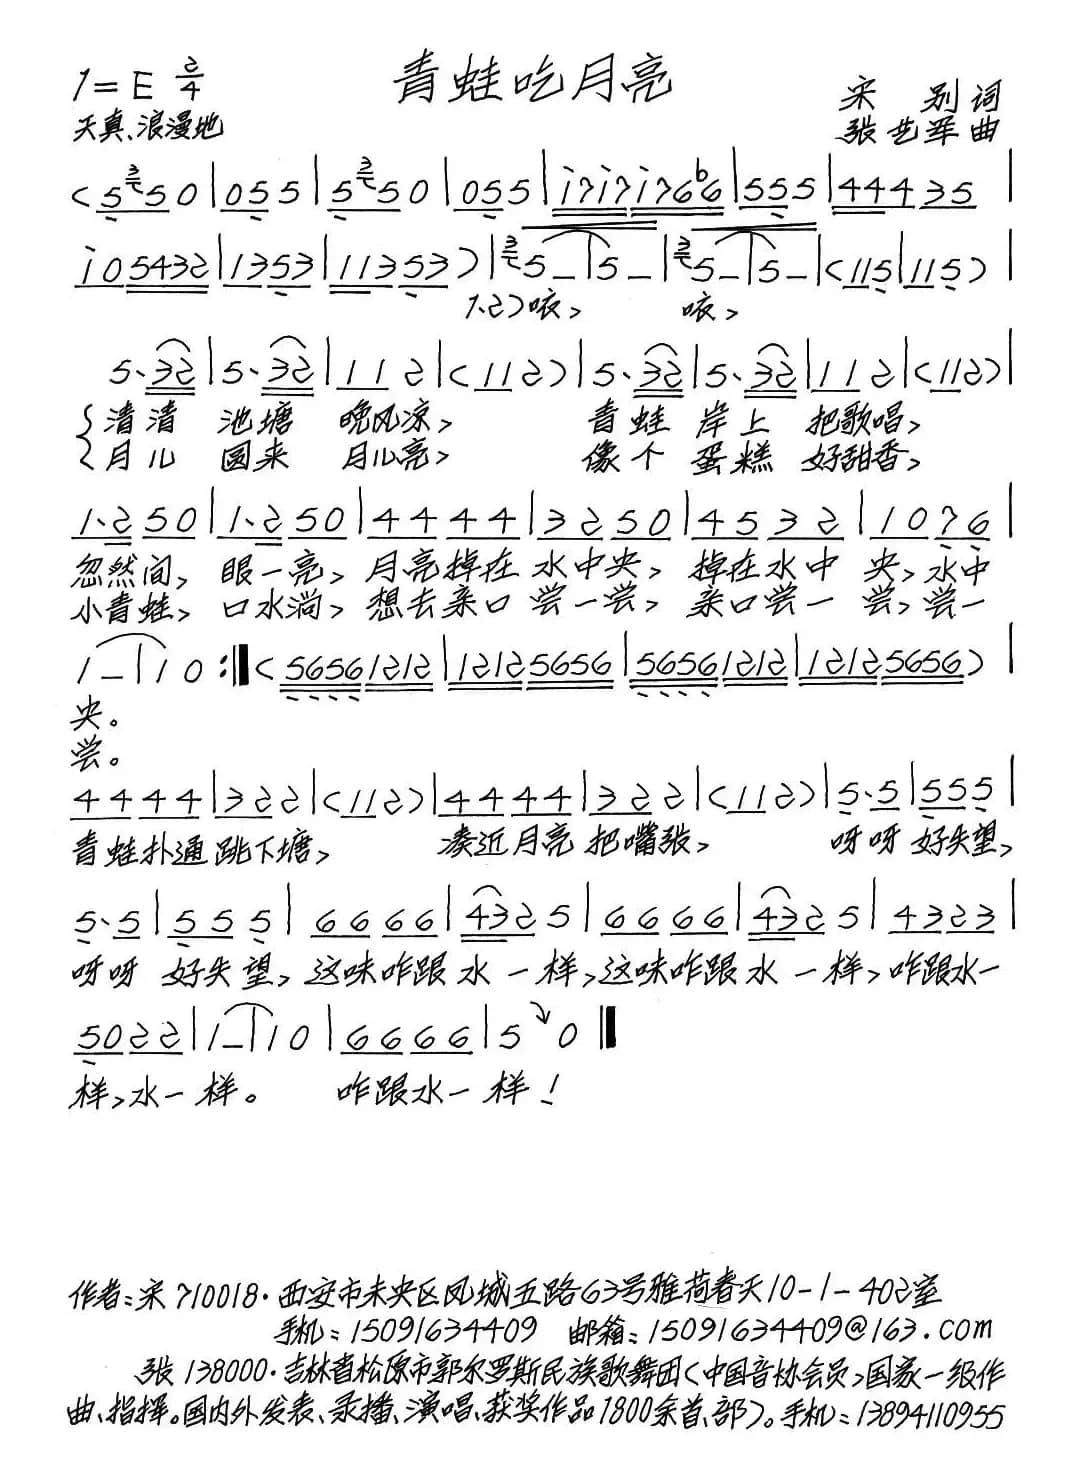 青蛙吃月亮
1=E 2/4
天真、浪漫地
宋 别 词
张艺军 曲
(5 3 5 0 | 0 5 5 | 5 3 5 0 | 0 5 5 | i7i7 i76b6 | 555 | 444 35 |
i0 5432 | 13 53 | 113 53) | 3 5 – | 5 – | 3 5 – | 5 – | (115 | 115) |
1、2)咴, 咴,
5· 32 | 5· 32 | 11 2 | (11 2) | 5· 32 | 5· 32 | 11 2 | (11 2) |
清清 池塘 晚风凉, 青蛙 岸上 把歌唱,
月儿 圆来 月儿亮, 像个 蛋糕 好甜香,
1·2 50 | 1·2 50 | 44 44 | 32 50 | 45 32 | 10 76 |
忽然间, 眼一亮, 月亮掉在 水中央, 掉在水中 央,水中
小青蛙, 口水淌, 想去亲口 尝一尝, 亲口尝一 尝,尝一
1 – | 1 0 :‖ (5656 1212 | 1212 5656 | 5656 1212 | 1212 5656) |
央。
尝。
44 44 | 32 2 | (11 2) | 44 44 | 32 2 | (11 2) | 5·5 | 55 5 |
青蛙扑通 跳下塘, 凑近月亮 把嘴张, 呀呀 好失望,
5·5 | 55 5 | 66 66 | 432 5 | 66 66 | 432 5 | 43 23 |
呀呀 好失望,这味咋跟 水一样,这味咋跟 水一样,咋跟水一
50 22 | 1 – | 1 0 | 66 66 | 5 0 ‖
样,水一样。 咋跟水一样!
作者:宋 710018·西安市未央区凤城五路63号雅荷春天10-1-402室
手机:15091634409 邮箱:15091634409@163.com
张 138000·吉林省松原市郭尔罗斯民族歌舞团(中国音协会员,国家一级作
曲、指挥。国内外发表、录播、演唱、获奖作品1800余首、部)。手机:13894110955